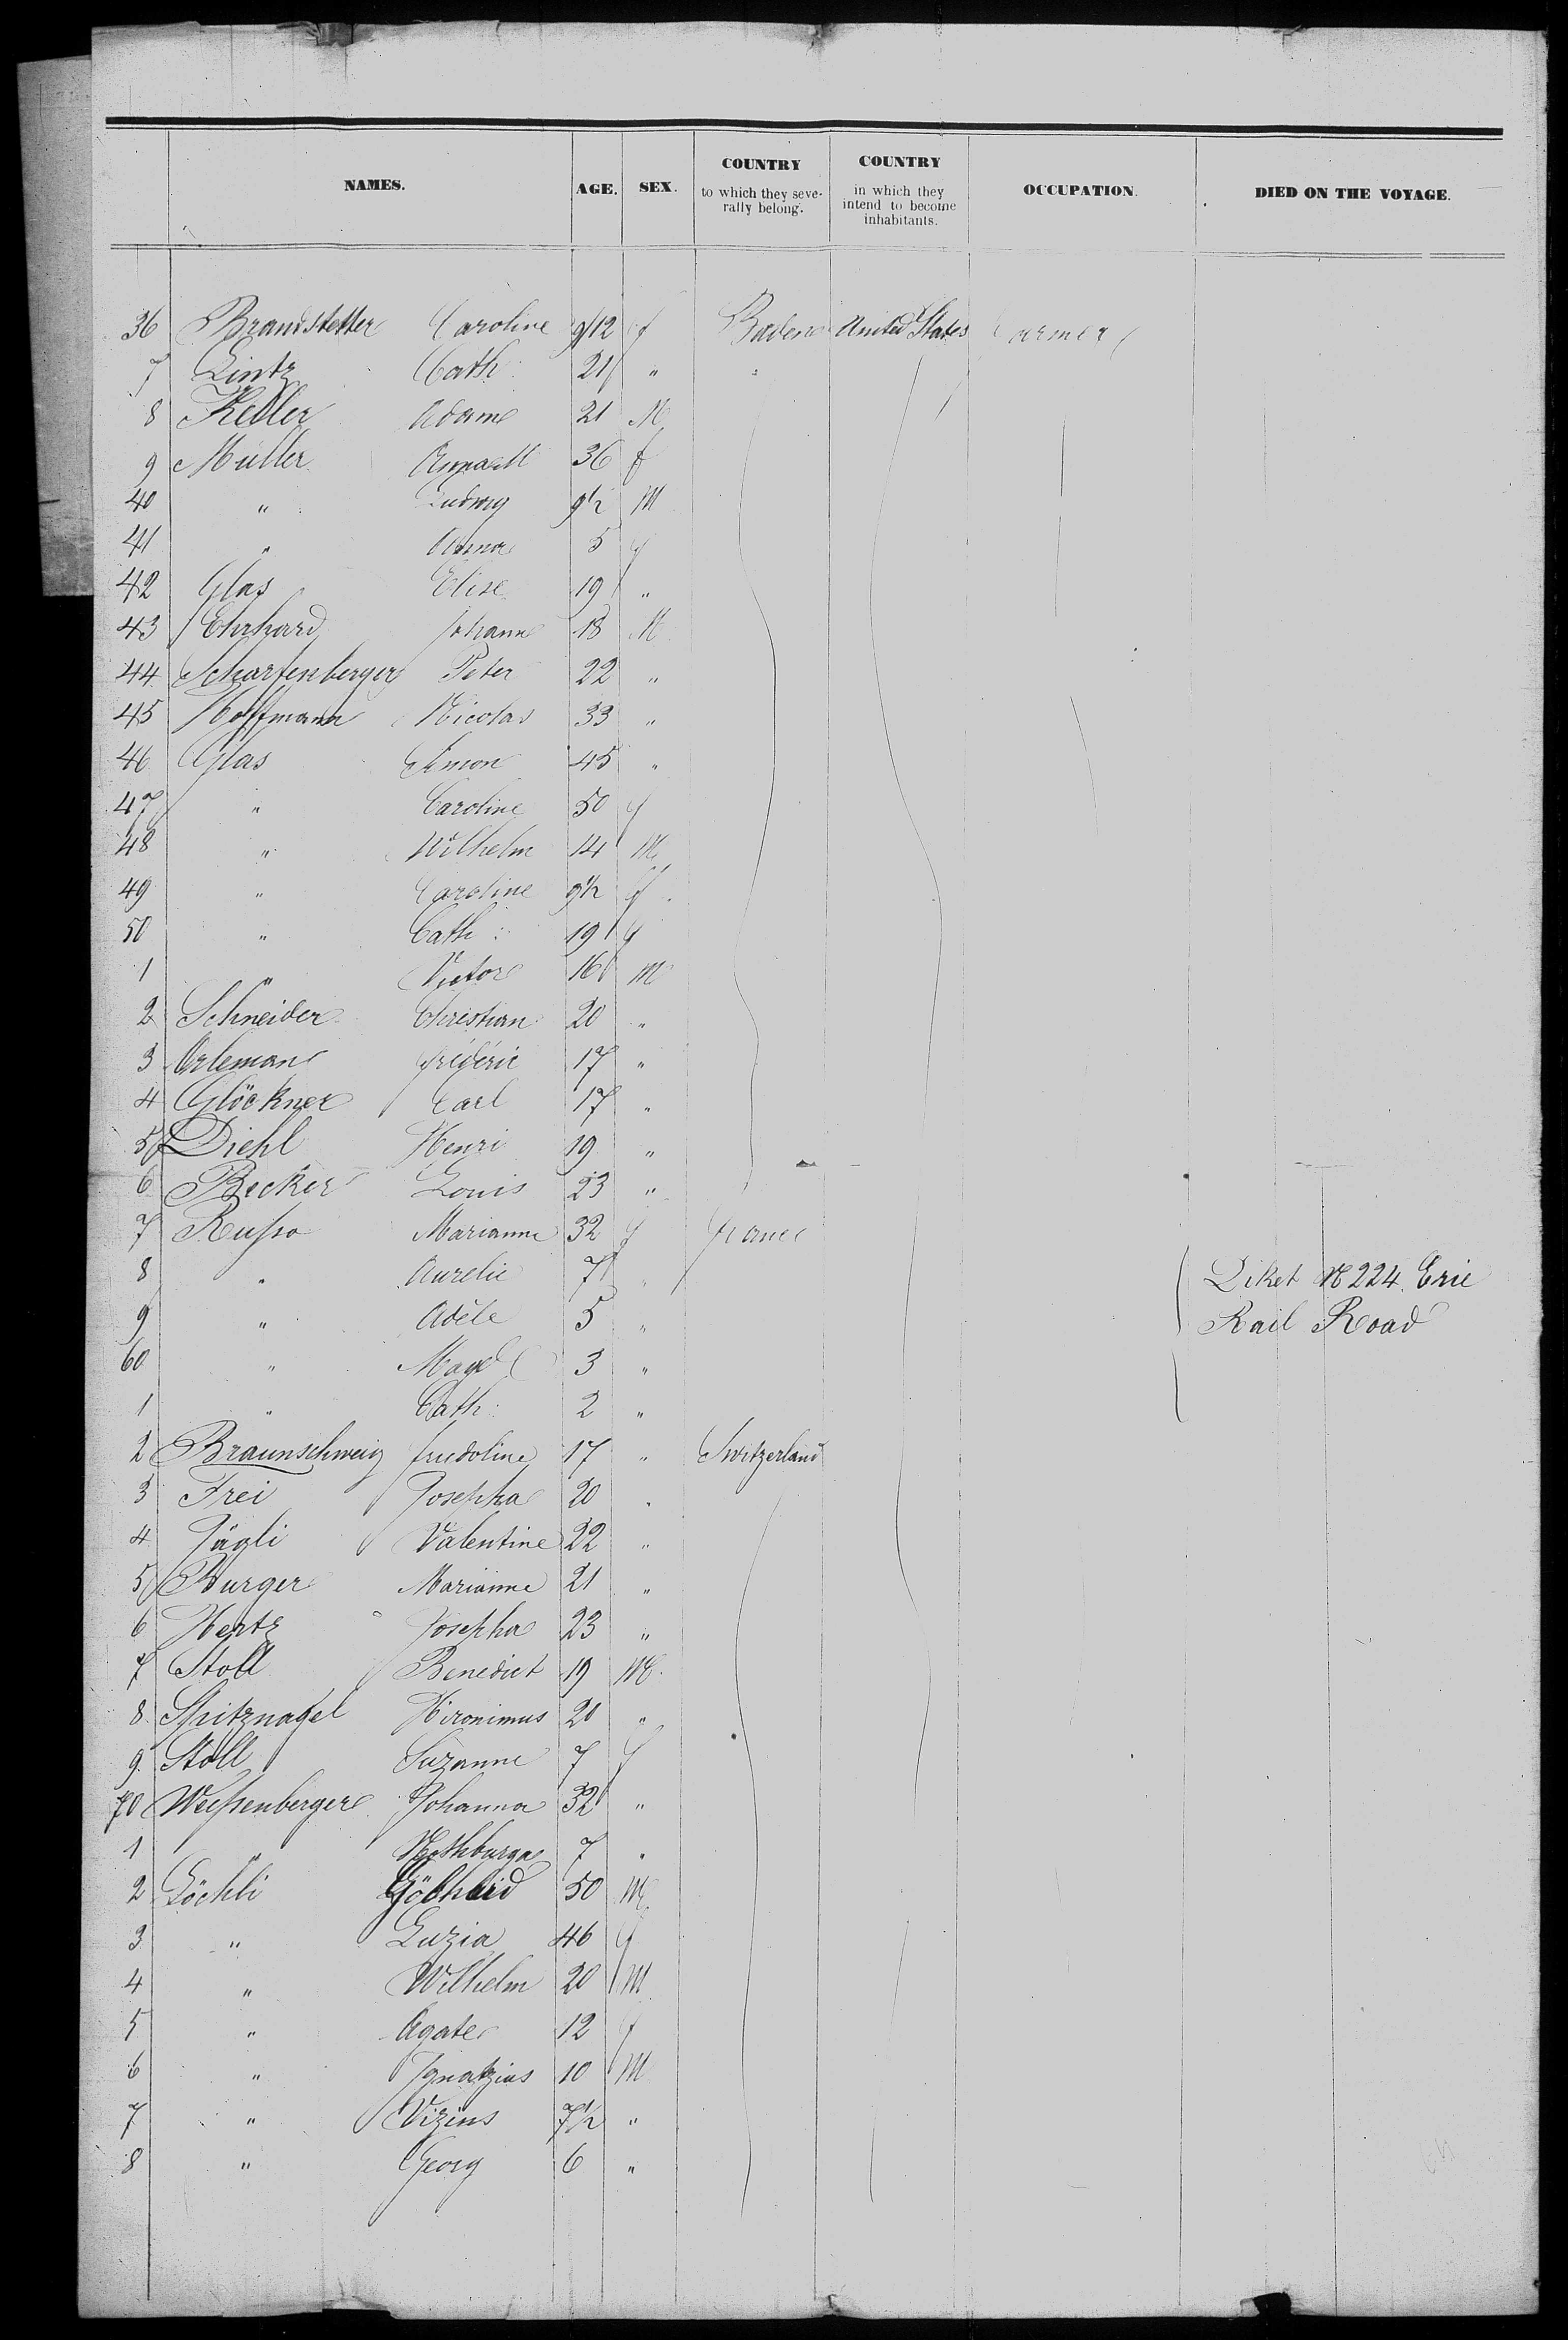 NAMES. AGE. SEX. COUNTRY to which they seve- rally belong. COUNTRY in which they intend to become inhabitants. OCCUPATION. DIED ON THE VOYAGE.
36 Brandstetter Caroline 9/12 f Baden United States Farmer
7 Lintz Cath: 21 "
8 Keller Adam 21 M
9 Müller 36 f
40 " Ludwig 9 1/2 M
41 " Anna 5 f
42 Glas Elise 19 "
43 Ehrhard Johann 18 M
44 Scharfenberger Peter 22 "
45 Hoffmann Nicolas 33 "
46 Glas Simon 45 "
47 " Caroline 50 f
48 " Wilhelm 14 M
49 " Caroline 9 1/2 f
50 " Cath: 19 f
1 " Victor 16 M
2 Schneider Christian 20 "
3 Orleman Fréderic 17 "
4 Glöckner Carl 17 "
5 Diehl Henri 19 "
6 Becker Louis 23 "
7 Russo Marianne 32 f France
8 " Aurelie 7 " Tiket N 224 Erie
9 " Adèle 5 " Rail Road
60 " Magd 3 "
1 " Cath: 2 "
2 Braunschweig Fridoline 17 " Switzerland
3 Frei Josepha 20 "
4 Jägli Valentine 22 "
5 Burger Marianne 21 "
6 Hertz Josepha 23 "
7 Stoll Benedict 19 M
8 Spitznagel Hironimus 20 "
9 Stoll Suzanne 7 f
70 Weissenberger Johanna 32 "
1 " Nothburga 7 "
2 Löchli 50 M
3 " Luzia 46 f
4 " Wilhelm 20 M
5 " Agate 12 f
6 " Ignatzius 10 M
7 " Vizins 7 1/2 "
8 " Georg 6 "